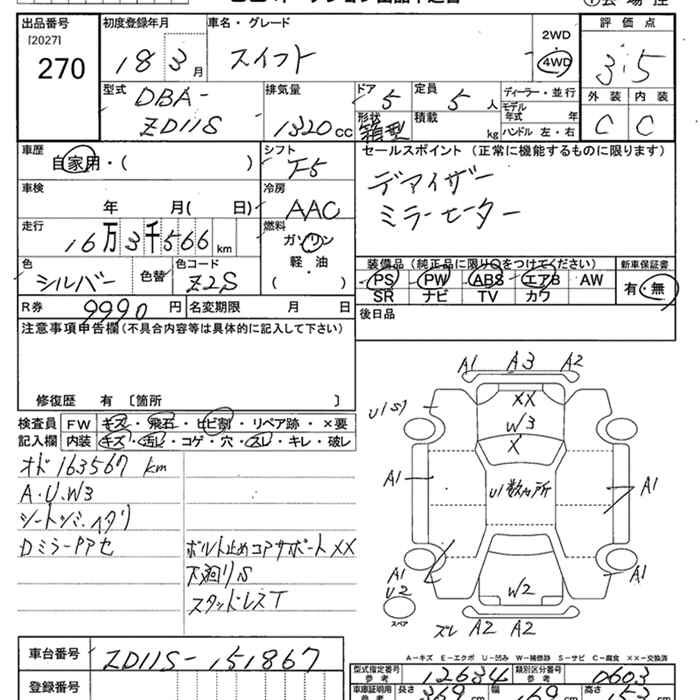 出品番号
[2027]
270
初度登録年月
18 3 月
車名・グレード
スイフト
2WD
4WD
評価点
3.5
外装 内装
C C
型式
DBA-
ZD11S
排気量
1320cc
ドア
5
定員
5 人
形状
箱型
積載
kg
ディーラー・並行
モデル
年式 年
ハンドル 左・右
車歴
自家用・( )
シフト
F5
車検
年 月( 日)
冷房
AAC
走行
16万3千566km
燃料
ガソリン
軽・油
( )
色
シルバー
色替
色コード
Z2S
R券
9990 円
名変期限 月 日
セールスポイント (正常に機能するものに限ります)
デアイザー
ミラーヒーター
装備品 (純正品に限り○をつけてください)
PS PW ABS エアB AW
SR ナビ TV カワ
新車保証書
有・無
後日品
注意事項申告欄(不具合内容等は具体的に記入して下さい)
修復歴 有 [箇所 ]
検査員 FW キズ・飛石・ヒビ割・リペア跡・×要
記入欄 内装 キズ・汚レ・コゲ・穴・スレ・キレ・破レ
オド163567 km
A・U・W3
シートシミ・イタリ
DミラーPアセ
ボルト止めコアサポートXX
下廻りS
スタッドレスT
A1 A3 A2
XX
U1S1
W3
X
A1
U1数ヶ所
A1
A1
U2
スペア
W2
A1
ズレ A2 A2
A-キズ E-エクボ U-凹み W-補修跡 S-サビ C-腐食 ××-交換済
車台番号
ZD11S-151867
登録番号
型式指定番号
参考
12634
類別区分番号
参考
0603
車庫証明用
参考
長さ
369cm
幅
169cm
高さ